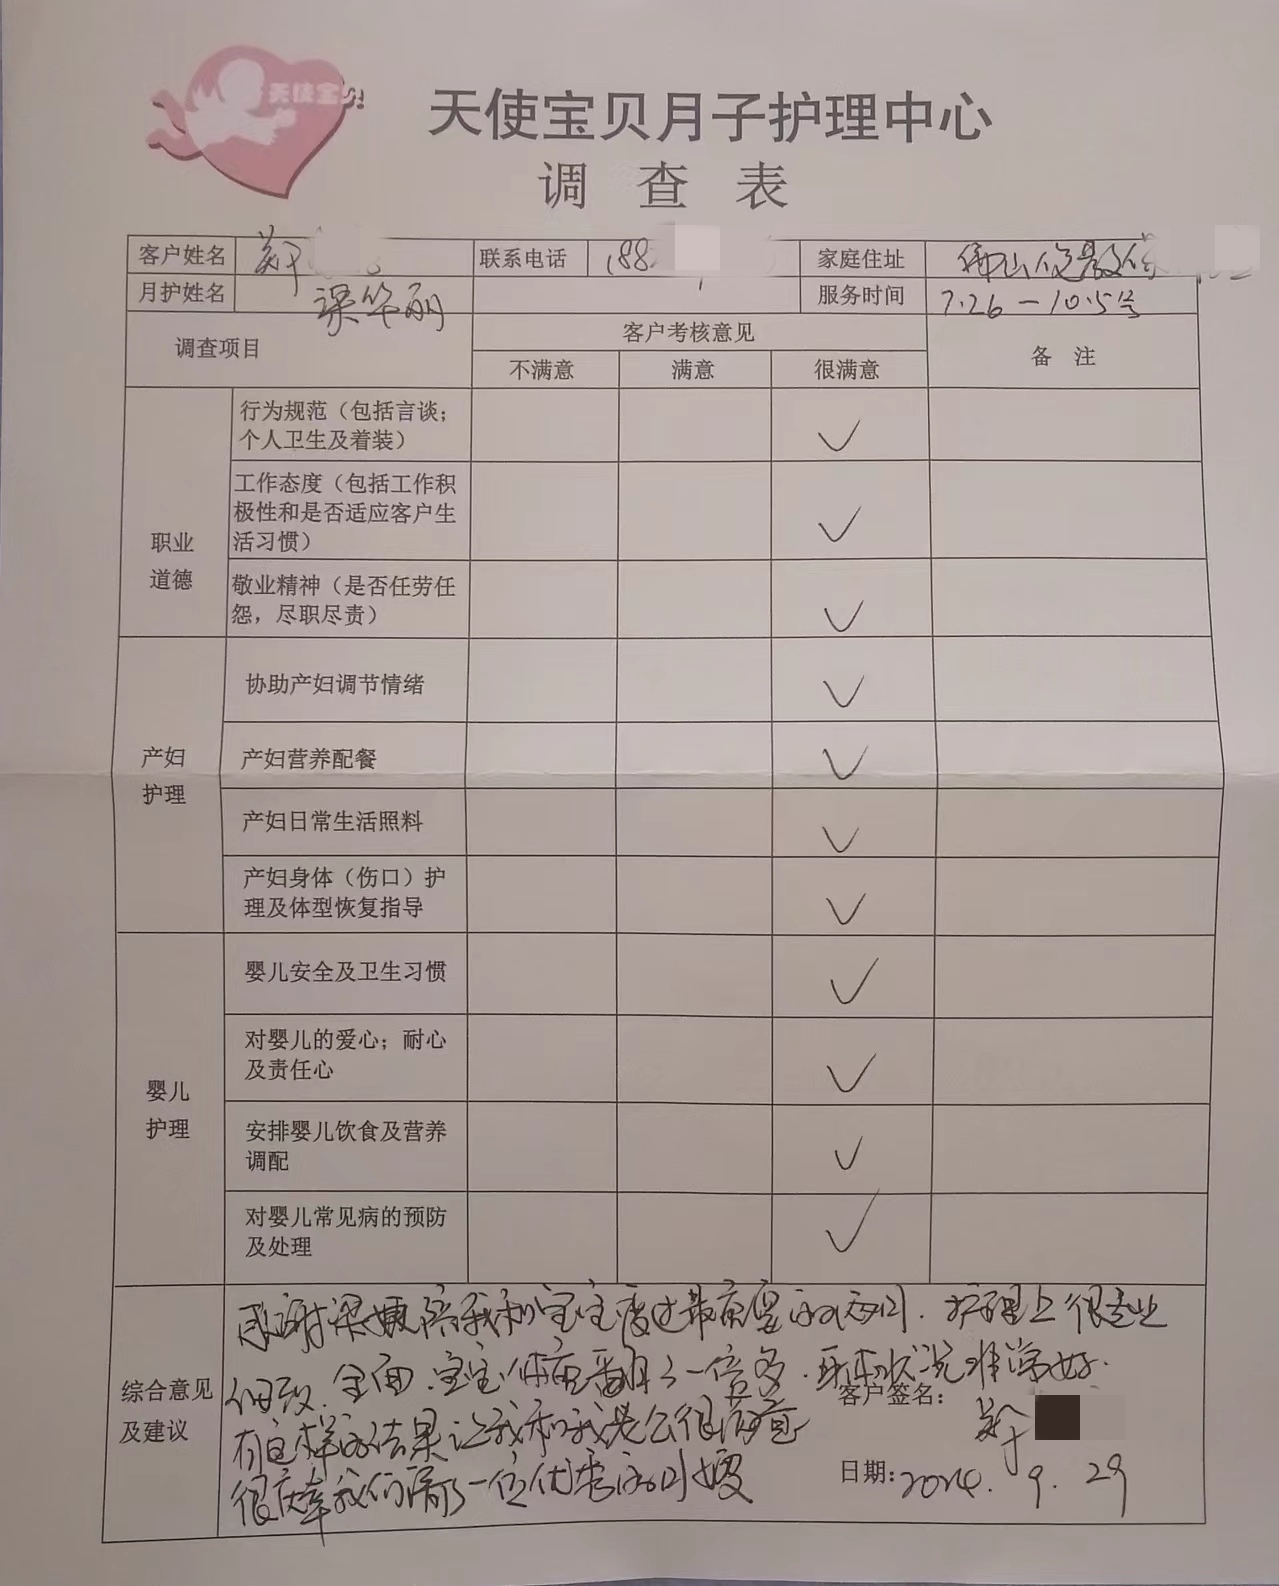 天使宝贝
天使宝贝月子护理中心
调查表
客户姓名 联系电话 188 家庭住址 佛山
月护姓名 梁华丽 服务时间 7.26-10.5号
调查项目 客户考核意见 备注
不满意 满意 很满意
职业
道德
行为规范（包括言谈；
个人卫生及着装） ✓
工作态度（包括工作积
极性和是否适应客户生
活习惯） ✓
敬业精神（是否任劳任
怨，尽职尽责） ✓
产妇
护理
协助产妇调节情绪 ✓
产妇营养配餐 ✓
产妇日常生活照料 ✓
产妇身体（伤口）护
理及体型恢复指导 ✓
婴儿
护理
婴儿安全及卫生习惯 ✓
对婴儿的爱心；耐心
及责任心 ✓
安排婴儿饮食及营养
调配 ✓
对婴儿常见病的预防
及处理 ✓
综合意见
及建议
感谢梁姨陪我和宝宝度过最重要的两月.护理上很专业
细致.全面.宝宝体重翻了一倍多.身体状况非常好.
有这样的结果让我和我老公很满意
很庆幸我们请了一位优秀的月嫂
客户签名：
日期：2024.9.29